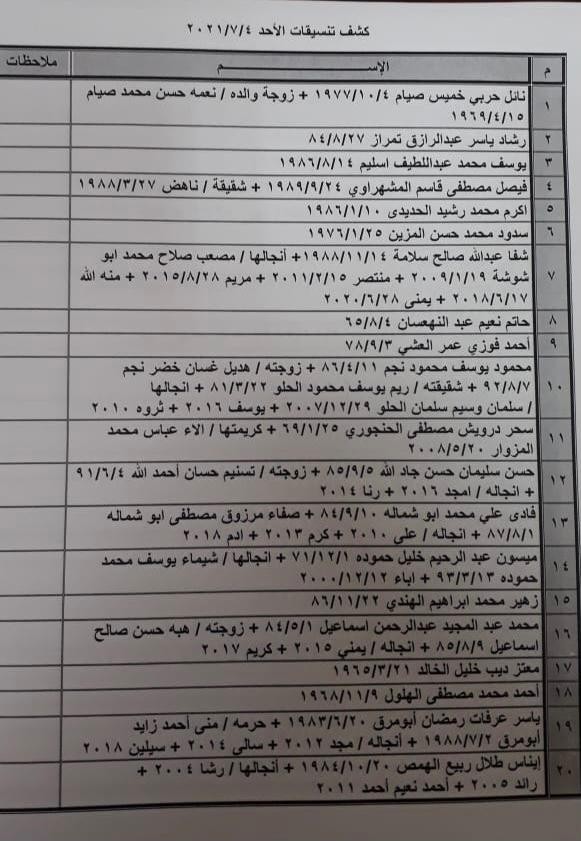 كشف تنسيقات الأحد ٢٠٢١/٧/٤
م الإســــــــم ملاحظات
١ نائل حربي خميس صيام ١٩٧٧/١٠/٤ + زوجة والده / نعمه حسن محمد صيام
١٩٦٩/٤/١٥
٢ رشاد ياسر عبدالرازق تمراز ٨٤/٨/٢٧
٣ يوسف محمد عبداللطيف اسليم ١٩٨٦/٨/١٤
٤ فيصل مصطفى قاسم المشهراوي ١٩٨٩/٩/٢٤ + شقيقة / ناهض ١٩٨٨/٣/٢٧
٥ اكرم محمد رشيد الحديدى ١٩٨٦/١/١٠
٦ سدود محمد حسن المزين ١٩٧٦/١/٢٥
٧ شفا عبدالله صالح سلامة ١٩٨٨/١١/١٤+ أنجالها / مصعب صلاح محمد ابو
شوشة ٢٠٠٩/١/١٩ + منتصر ٢٠١١/٢/١٥ + مريم ٢٠١٥/٨/٢٨ + منه الله
٢٠١٨/٦/١٧ + يمنى ٢٠٢٠/٦/٢٨
٨ حاتم نعيم عبد النهعسان ٦٥/٨/٤
٩ أحمد فوزي عمر العشي ٧٨/٩/٣
١٠ محمود يوسف محمود نجم ٨٦/٤/١١ + زوجته / هديل غسان خضر نجم
٩٢/٨/٧ + شقيقته / ريم يوسف محمود الحلو ٨١/٣/٢٢ + انجالها
/ سلمان وسيم سلمان الحلو ٢٠٠٧/١٢/٢٩ + يوسف ٢٠١٦ + ثروه ٢٠١٠
١١ سحر درويش مصطفى الحنجوري ٦٩/١/٢٥ + كريمتها / الاء عباس محمد
المزوار ٢٠٠٨/٥/٢٠
١٢ حسن سليمان حسن جاد الله ٨٥/٩/٥ + زوجته / تسنيم حسان أحمد الله ٩١/٦/٤
+ انجاله / امجد ٢٠١٦ + رنا ٢٠١٤
١٣ فادى علي محمد ابو شماله ٨٤/٩/١٠ + صفاء مرزوق مصطفى ابو شماله
٨٧/٨/١ + انجاله / على ٢٠١٠ + كرم ٢٠١٣ + ادم ٢٠١٨
١٤ ميسون عبد الرحيم خليل حموده ٧١/١٢/١ + انجالها / شيماء يوسف محمد
حموده ٩٣/٣/١٣ + اباء ٢٠٠٠/١٢/١٢
١٥ زهير محمد ابراهيم الهندي ٨٦/١١/٢٢
١٦ محمد عبد المجيد عبدالرحمن اسماعيل ٨٤/٥/١ + زوجته / هبه حسن صالح
اسماعيل ٨٥/٨/٩ + انجاله / يمني ٢٠١٥ + كريم ٢٠١٧
١٧ معتز ديب خليل الخالد ١٩٦٥/٣/٢١
١٨ أحمد محمد مصطفى الهلول ١٩٦٨/١١/٩
١٩ ياسر عرفات رمضان أبومرق ١٩٨٣/٦/٢٠ + حرمه / منى أحمد زايد
أبومرق ١٩٨٨/٧/٢ + أنجاله / مجد ٢٠١٢ + سالى ٢٠١٤ + سيلين ٢٠١٨
٢٠ إيناس طلال ربيع الهمص ١٩٨٤/١٠/٢٠ + أنجالها / رشا ٢٠٠٤ +
رائد ٢٠٠٥ + أحمد نعيم أحمد ٢٠١١